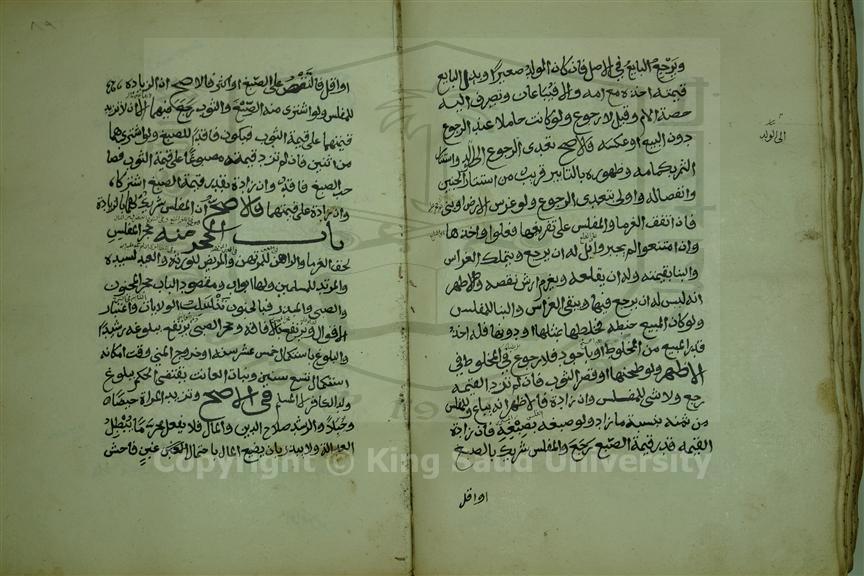 ويرجع البايع في الاصل فان كان الولد صغيرا وبذل البايع
قيمته اخذه مع امه والا فيباعان وتصرف اليه
حصة الام وقيل لا رجوع ولو كانت حاملا عند الرجوع
دون البيع او عكسه فالاصح تعدى الرجوع الى الولد واستتار
الثمر بكمامه وظهوره بالتابير قريب من استتار الجنين
وانفصاله واولى بتعدى الرجوع ولو غرس الارض او بنى
فاذا اتفق الغرما والمفلس على تفريغها فعلوا واخذها
وان امتنعوا لم يجبروا بل له ان يرجع ويتملك الغراس
والبنا بقيمته وله ان يقلعه ويغرم ارش نقصه والاظهر
انه ليس له ان يرجع فيها ويبقى الغراس والبنا للمفلس
ولو كان المبيع حنطة فخلطها بمثلها او دونها فله اخذ
قدر المبيع من المخلوط او باجود فلا رجوع في المخلوط في
الاظهر ولو طحنها او قصر الثوب فان لم تزد القيمة
رجع ولا شى للمفلس وان زادت فالاظهر انه يباع وللمفلس
من ثمنه بنسبة ما زاد ولو صبغه بصبغه فان زادت
القيمة قدر قيمة الصبغ رجع والمفلس شريك بالصبغ
او اقل
الى الولد
او اقل فالنقص على الصبغ او اكثر فالاصح ان الزيادة
للمفلس ولو اشترى منه الصبغ والثوب رجع فيهما الا ان لا تزيد
قيمتهما على قيمة الثوب فيكون فاقدا للصبغ ولو اشتراهما
من اثنين فان لم تزد قيمته مصبوغا على قيمة الثوب فصا
حب الصبغ فاقد وان زادت بقدر قيمة الصبغ اشتركا
وان زادت على قيمتهما فالاصح ان المفلس شريك لهما بالزيادة
باب الحجر منه حجر المفلس
لحق الغرما والراهن للمرتهن والمريض للورثة والعبد لسيده
والمرتد للمسلمين ولها ابواب ومقصود الباب حجر المجنون
والصبي والمبذر فبالجنون تنسلب الولايات واعتبار
الاقوال ويرتفع بالافاقة وحجر الصبي يرتفع ببلوغه رشيدا
والبلوغ باستكمال خمس عشرة سنة او خروج المني ووقت امكانه
استكمال تسع سنين ونبات العانة يقتضي الحكم ببلوغ
ولد الكافر لا المسلم في الاصح وتزيد المراة حيضا
وحبلا والرشد صلاح الدين والمال فلا يفعل محرما يبطل
العدالة ولا يبذر بان يضيع المال باحتمال غبن فاحش